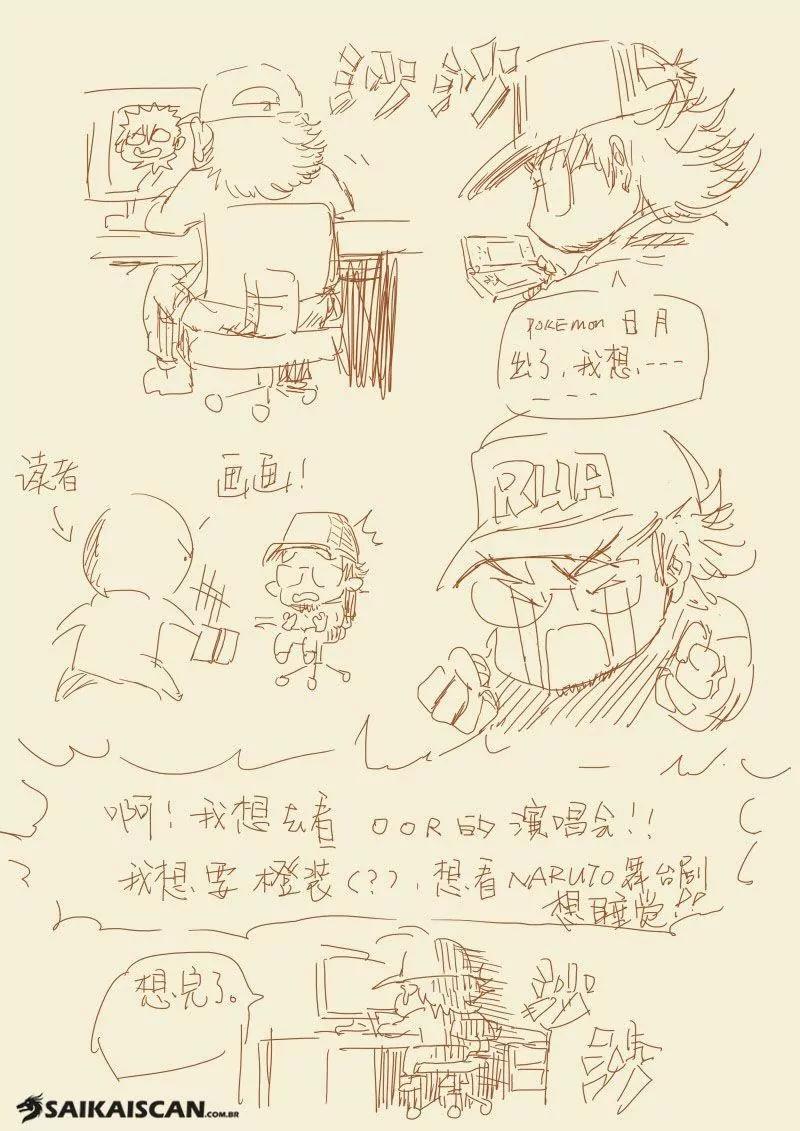 POKEMON 日月
出了,我想,----
----
读者
画画!
RUA
啊!我想去看 OOR的演唱会!!
我想要橙装(?),想看NARUTO舞台剧
想睡觉!!
想完了。
SAIKAISCAN.COM.BR